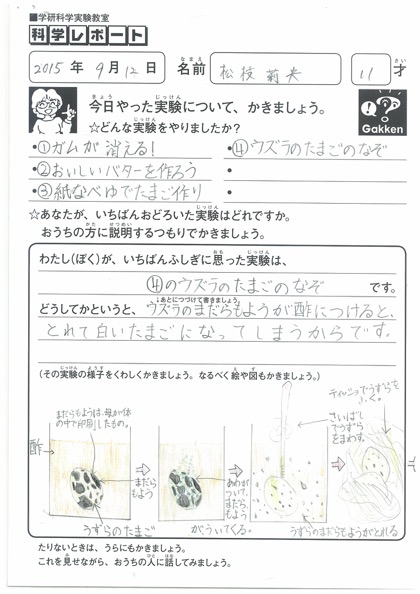 ■学研科学実験教室
科学レポート
2015年 9月12日 名前 松枝 菊央 11才
今日やった実験について、かきましょう。
☆どんな実験をやりましたか?
・①ガムが消える!
・④ウズラのたまごのなぞ
・②おいしいバターを作ろう
・③紙なべゆでたまご作り
Gakken
☆あなたが、いちばんおどろいた実験はどれですか。
おうちの方に説明するつもりでかきましょう。
わたし(ぼく)が、いちばんふしぎに思った実験は、
④のウズラのたまごのなぞ です。
↓あとにつづけて書きましょう
どうしてかというと、ウズラのまだらもようが酢につけると、
とれて白いたまごになってしまうからです。
(その実験の様子をくわしくかきましょう。なるべく絵や図もかきましょう。)
まだらもようは、母が体
の中で印刷したもの。
酢
まだら
もよう
うずらのたまご
あわが
ついて、
まだら
もよう
がういてくる。
さいばし
でうずら
をまわす。
うずらのまだらもようがとれる
ティッシュでうずらを
ふく。
たりないときは、うらにもかきましょう。
これを見せながら、おうちの人に話してみましょう。